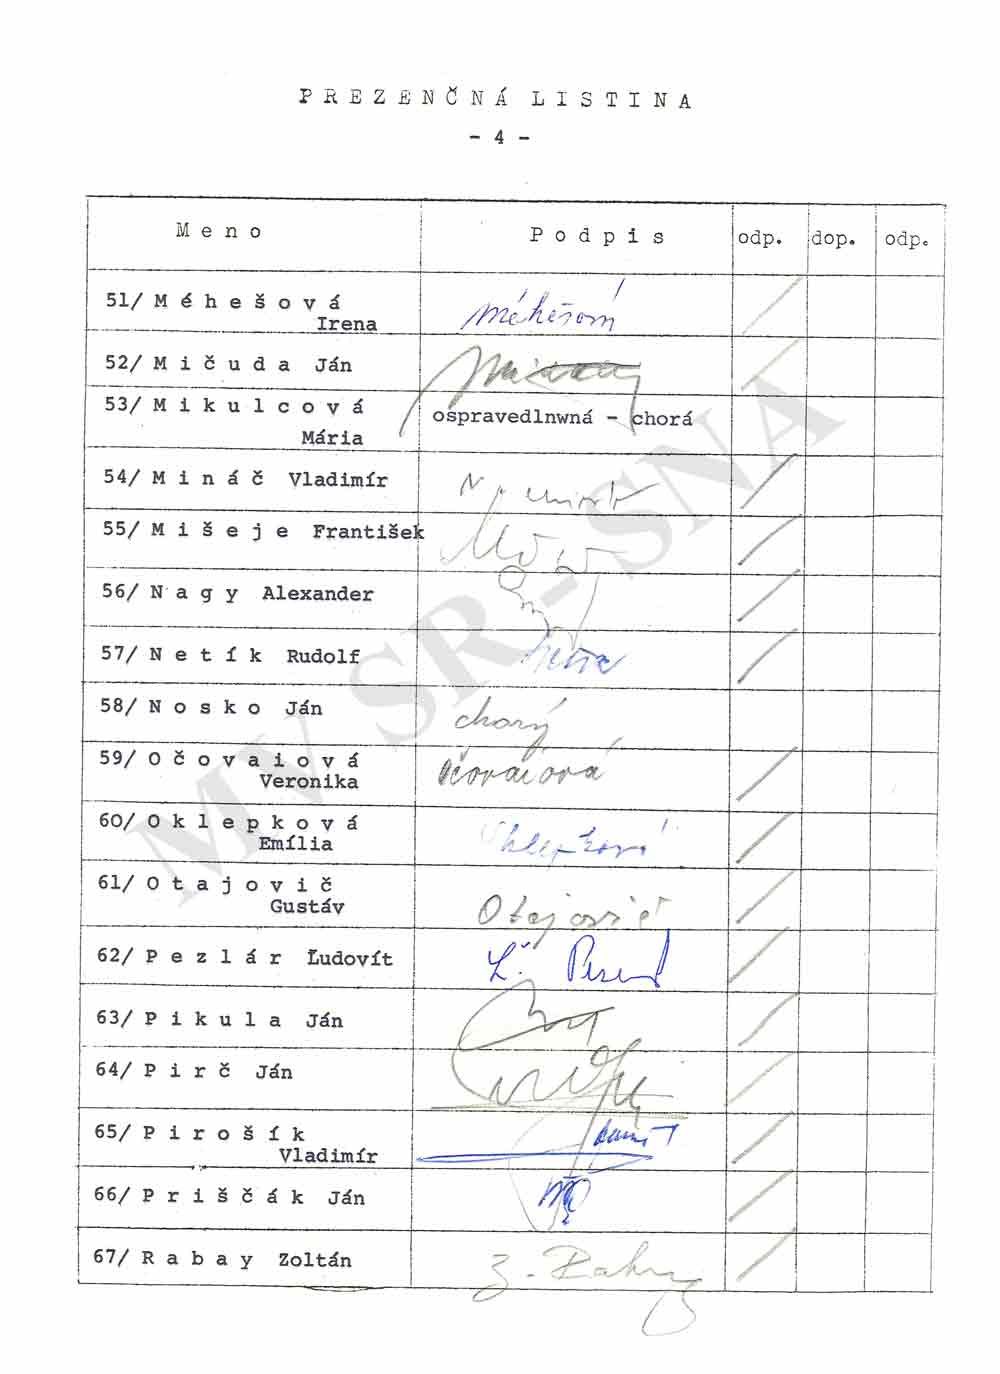 PREZENČNÁ LISTINA
- 4 -
Meno Podpis odp. dop. odp.
51/ Méhešová Irena Méhešová
52/ Mičuda Ján
53/ Mikulcová Mária ospravedlnwná - chorá
54/ Mináč Vladimír
55/ Mišeje František
56/ Nagy Alexander
57/ Netík Rudolf
58/ Nosko Ján chorý
59/ Očovaiová Veronika Očovaiová
60/ Oklepková Emília Oklepková
61/ Otajovič Gustáv Otajovič
62/ Pezlár Ľudovít
63/ Pikula Ján
64/ Pirč Ján
65/ Pirošík Vladimír
66/ Priščák Ján
67/ Rabay Zoltán Z. Rabay
MV SR - SNA